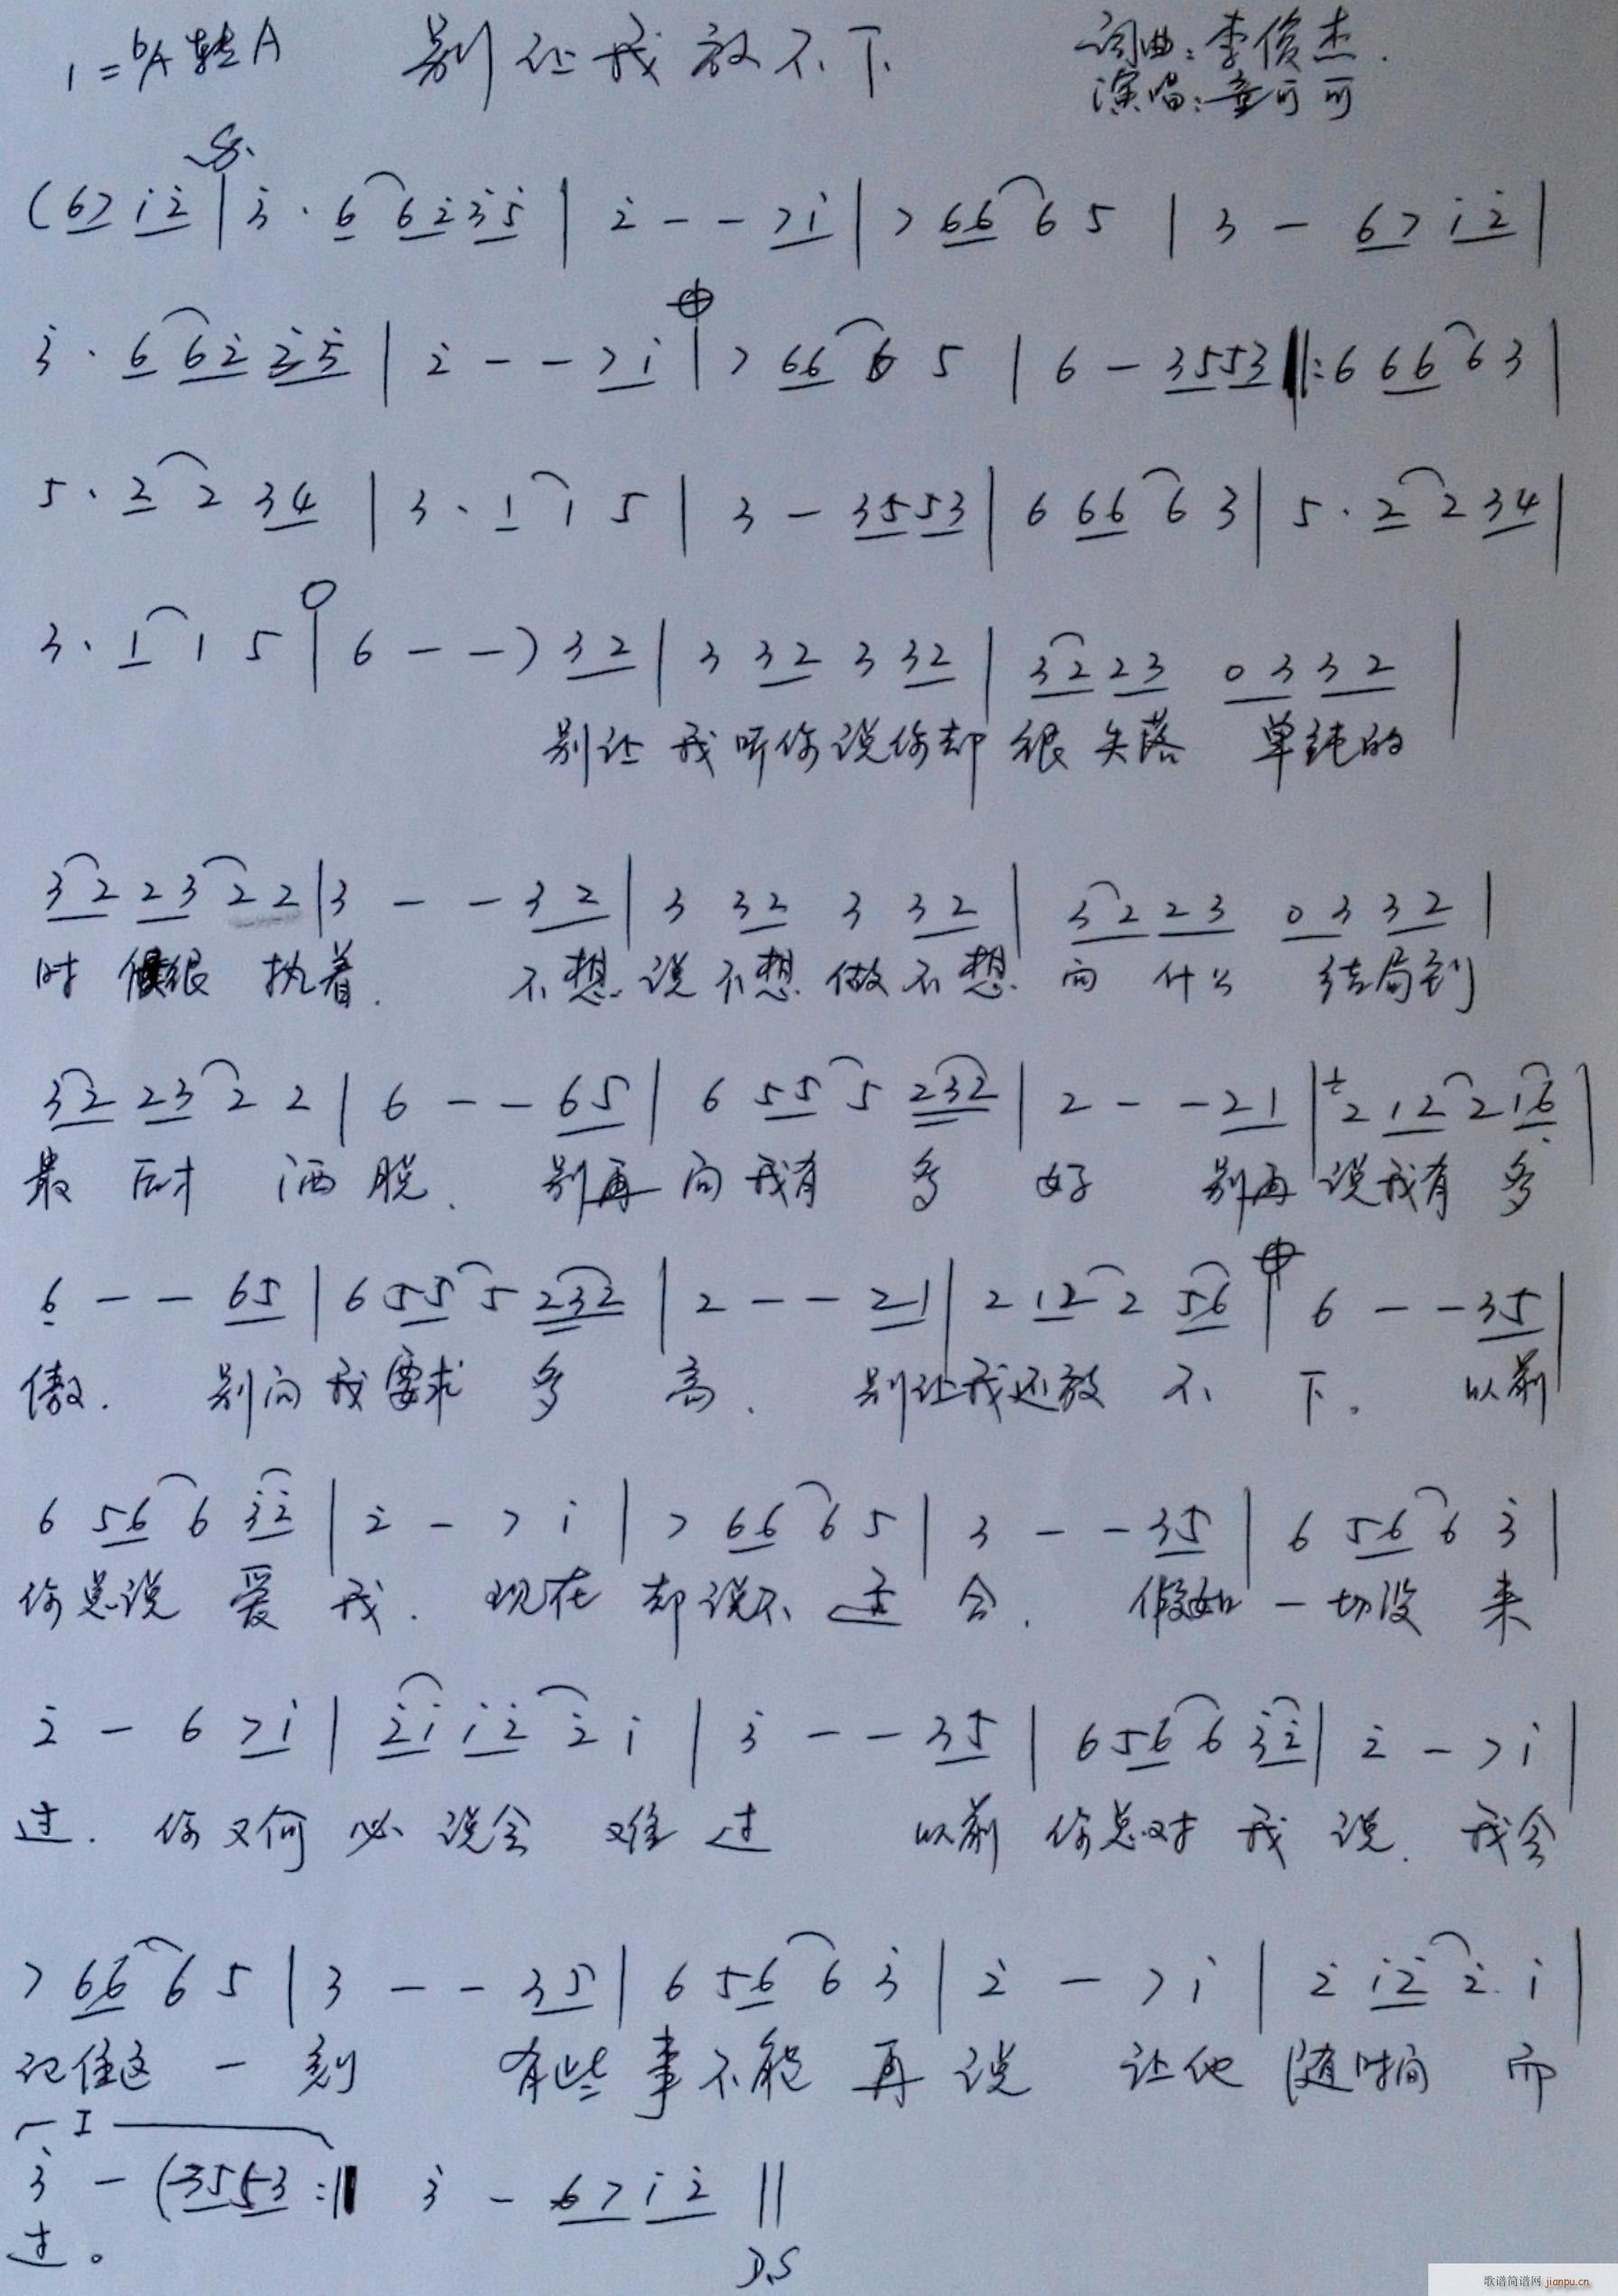 1=♭A转A 别让我放不下 词曲：李俊杰.
演唱：童可可
(67 i̇ 2̇ | 3̇ · 6 6 2̇ 3̇ 5̇ | 2̇ - - 7 i̇ | 7 6 6 6 5 | 3 - 6 7 i̇ 2̇ |
3̇ · 6 6 2̇ 3̇ 5̇ | 2̇ - - 7 i̇ | 7 6 6 6 5 | 6 - 3 5 5 3 ‖: 6 6 6 6 3 |
5 · 2 2 3 4 | 3 · 1 1 5 | 3 - 3 5 5 3 | 6 6 6 6 3 | 5 · 2 2 3 4 |
3 · 1 1 5 | 6 - - ) 3 2 | 3 3 2 3 3 2 | 3 2 2 3 0 3 3 2 |
别让 我听你说你却 很失落 单纯的
3 2 2 3 2 2 | 3 - - 3 2 | 3 3 2 3 3 2 | 3 2 2 3 0 3 3 2 |
时候很 执着. 不想说不想做不想 问 什么 结局到
3 2 2 3 2 2 | 6 - - 6 5 | 6 5 5 5 2 3 2 | 2 - - 2 1 | 2 1 2 2 1 6̣ |
最 后才 洒脱. 别再问我有 多 好 别再说我有 多
6̣ - - 6 5 | 6 5 5 5 2 3 2 | 2 - - 2 1 | 2 1 2 2 5 6 | 6 - - 3 5 |
傲. 别问我要求 多 高. 别让我还放 不 下。 以前
6 5 6 6 3̇ 2̇ | 2̇ - 7 i̇ | 7 6 6 6 5 | 3 - - 3 5 | 6 5 6 6 3̇ |
你总说 爱 我. 现在 却说不 适 合. 假如一切没 来
2̇ - 6 7 i̇ | 2̇ i̇ i̇ 2̇ 2̇ i̇ | 3̇ - - 3 5 | 6 5 6 6 3̇ 2̇ | 2̇ - 7 i̇ |
过. 你又何 必 说会 难 过 以前 你总对 我 说. 我会
7 6 6 6 5 | 3 - - 3 5 | 6 5 6 6 3̇ | 2̇ - 7 i̇ | 2̇ i̇ 2̇ 2̇. i̇ |
记住这 一 刻 有些事不能 再 说 让他 随时间 而
I
3̇ - (3 5 5 3 :‖ 3̇ - 6 7 i̇ 2̇ ‖
过。 D.S
歌谱简谱网 jianpu.cn